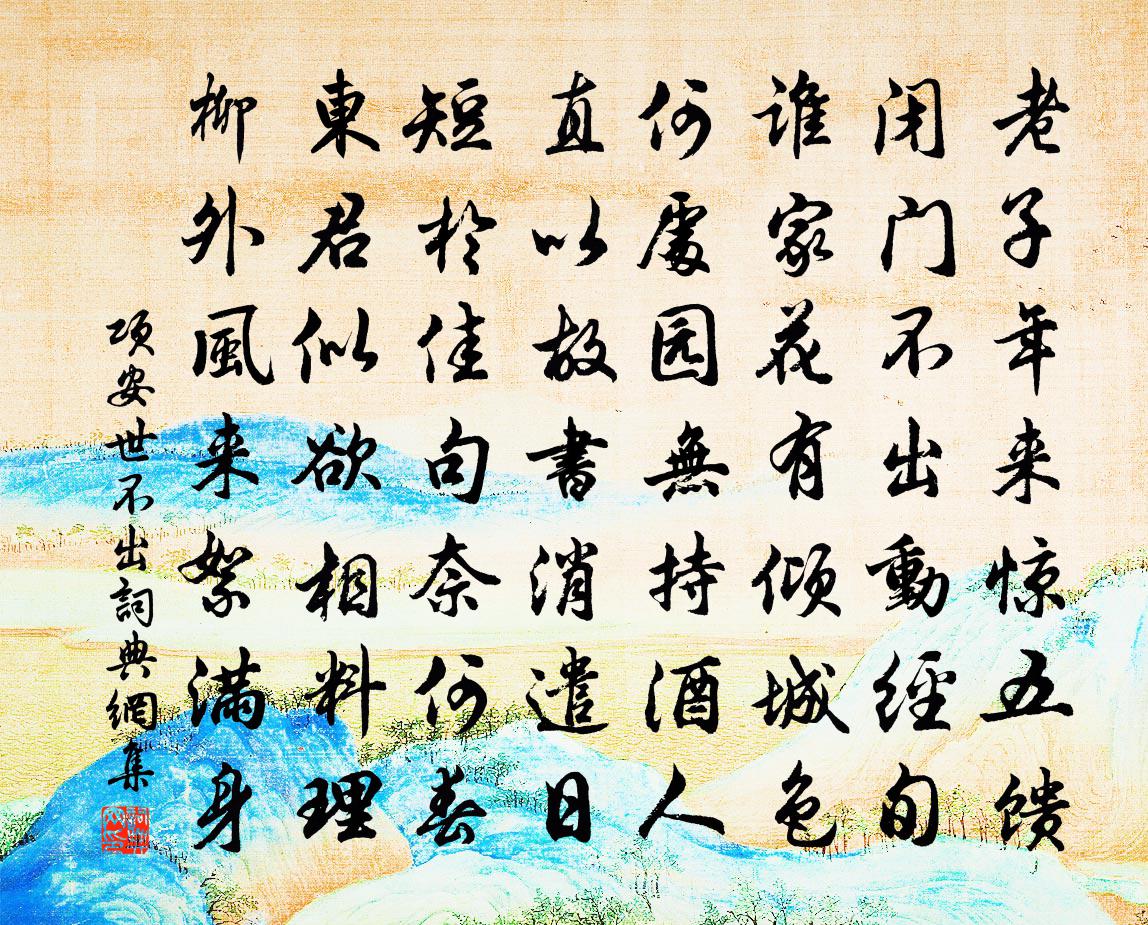 老子年来惊五馈
闭门不出動經旬
谁家花有倾城色
何處园無持酒人
直以故書消遣日
短於佳句奈何春
東君似欲相料理
柳外風来絮满身
项安世不出詞典網集